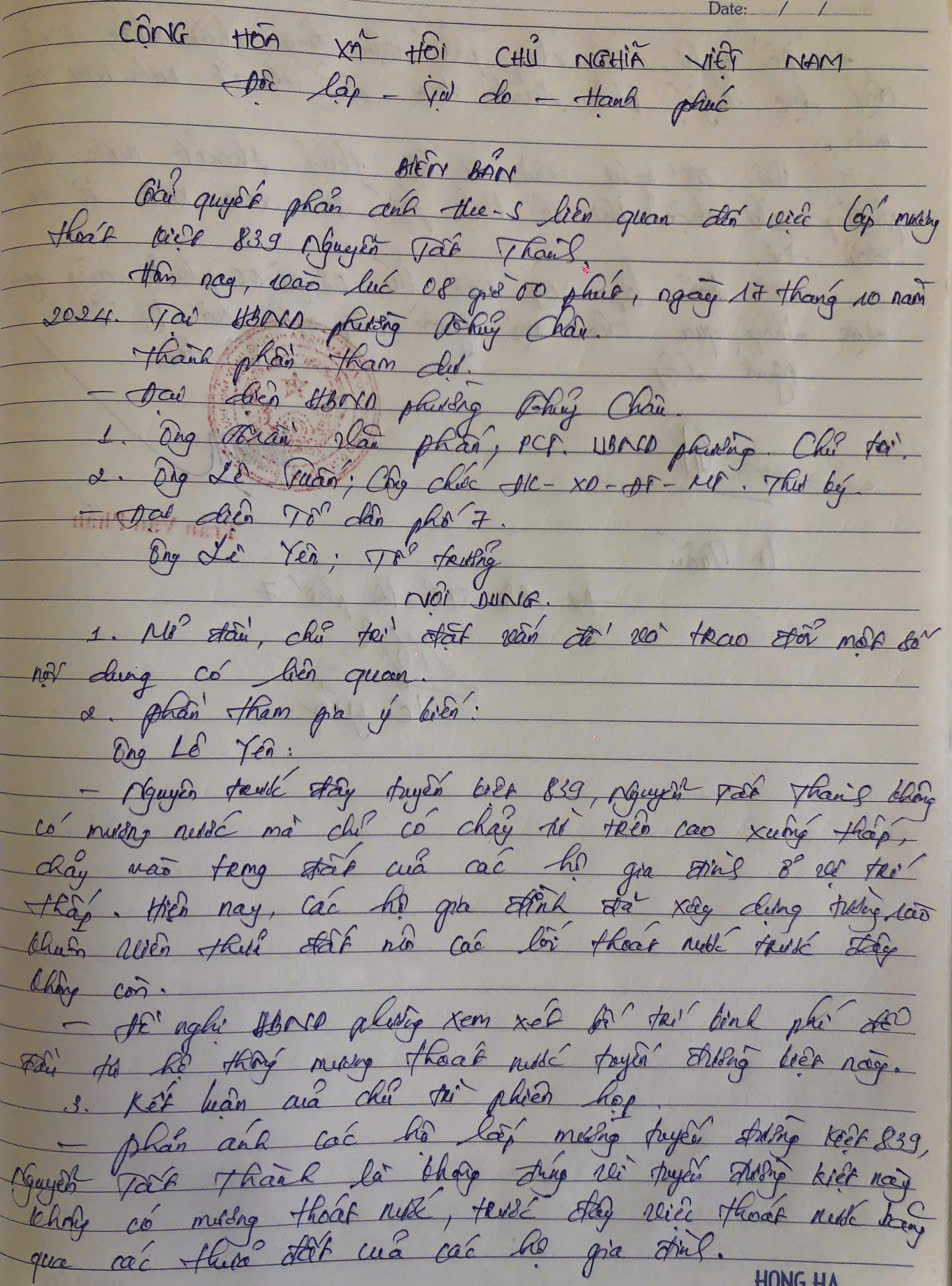 Date: / /
CỘNG HÒA XÃ HỘI CHỦ NGHĨA VIỆT NAM
Độc lập - Tự do - Hạnh phúc
BIÊN BẢN
Giải quyết phản ánh Hue-S liên quan đến việc lấp mương
thoát kiệt 839 Nguyễn Tất Thành.
Hôm nay, vào lúc 08 giờ 00 phút, ngày 17 tháng 10 năm
2024. Tại UBND phường Thủy Châu.
Thành phần tham dự.
- Đại diện UBND phường Thủy Châu.
1. Ông Trần Văn Phấn; PCT. UBND phường. Chủ trì.
2. Ông Lê Tuấn; Công chức ĐC-XD-ĐT-MT. Thư ký.
- Đại diện Tổ dân phố 7.
Ông Lê Yên; Tổ trưởng
NỘI DUNG.
1. Mở đầu, chủ trì đặt vấn đề và trao đổi một số
nội dung có liên quan.
2. Phần tham gia ý kiến:
Ông Lê Yên:
- Nguyên trước đây tuyến kiệt 839, Nguyễn Tất Thành không
có mương nước mà chỉ có chảy từ trên cao xuống thấp,
chảy vào trong đất của các hộ gia đình ở vị trí
thấp. Hiện nay, các hộ gia đình đã xây dựng tường rào
khuôn viên thửa đất nên các lối thoát nước trước đây
không còn.
- Đề nghị UBND phường xem xét bố trí kinh phí để
đầu tư hệ thống mương thoát nước tuyến đường kiệt này.
3. Kết luận của chủ trì phiên họp
- Phản ánh các hộ lấp mương tuyến đường kiệt 839,
Nguyễn Tất Thành là không đúng vì tuyến đường kiệt này
không có mương thoát nước, trước đây việc thoát nước bằng
qua các thửa đất của các hộ gia đình.
HONG HA